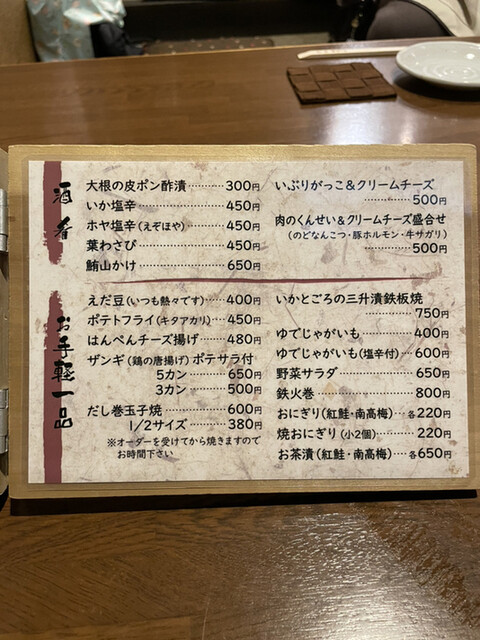 酒肴
大根の皮ポン酢漬………300円
いか塩辛………………450円
ホヤ塩辛(えぞほや)……450円
葉わさび………………450円
鮪山かけ………………650円
いぶりがっこ&クリームチーズ
………500円
肉のくんせい&クリームチーズ盛合せ
(のどなんこつ・豚ホルモン・牛サガリ)
………500円
お手軽一品
えだ豆(いつも熱々です)…400円
ポテトフライ(キタアカリ)…450円
はんぺんチーズ揚げ……480円
ザンギ(鶏の唐揚げ)ポテサラ付
5カン………650円
3カン………500円
だし巻玉子焼…………600円
1/2サイズ………380円
※オーダーを受けてから焼きますので
お時間下さい
いかとごろの三升漬鉄板焼
………750円
ゆでじゃがいも………400円
ゆでじゃがいも(塩辛付)…600円
野菜サラダ……………650円
鉄火巻…………………800円
おにぎり(紅鮭・南高梅)…各220円
焼おにぎり(小2個)………220円
お茶漬(紅鮭・南高梅)……各650円